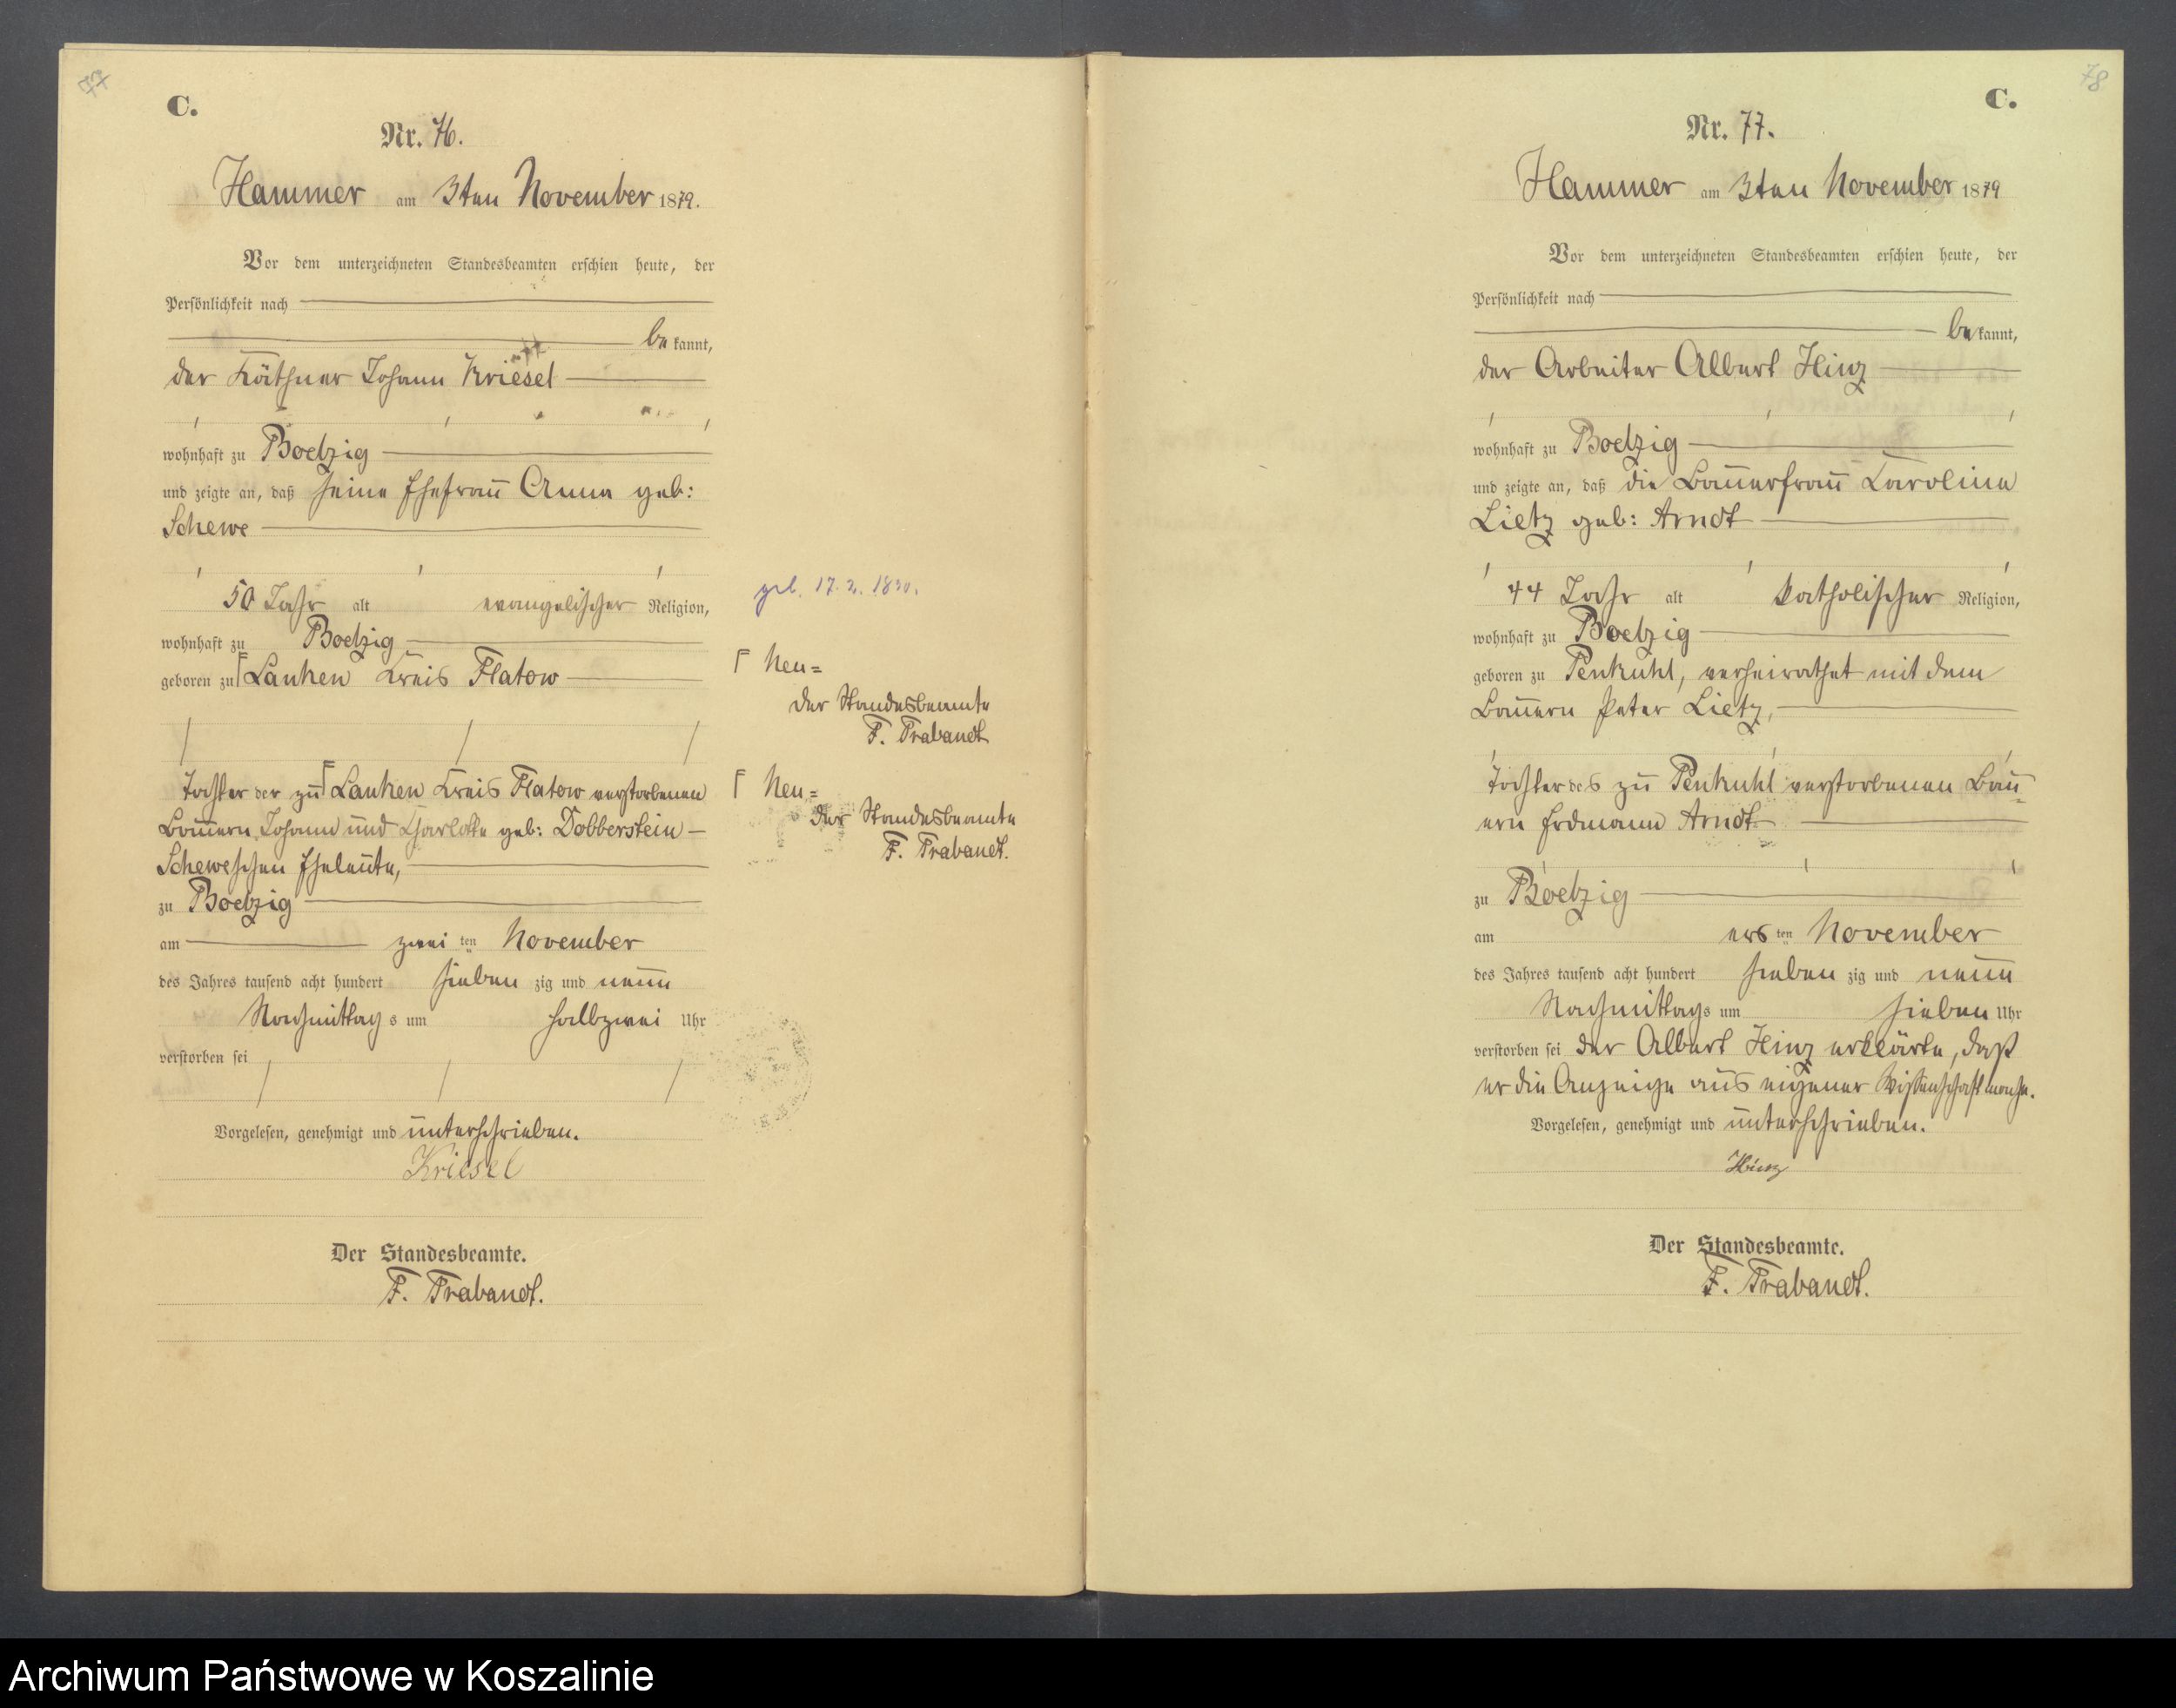 77
C.
Nr. 76.
Hammer am 3ten November 1879.
Vor dem unterzeichneten Standesbeamten erschien heute, der
Persönlichkeit nach
be kannt,
der Käthner Johann Kriesel
wohnhaft zu Boetzig
und zeigte an, daß seine Ehefrau Anna geb:
Schewe
50 Jahr alt evangelischer Religion,
wohnhaft zu Boetzig
geboren zu Γ Lanken Kreis Flatow
Tochter der zu Γ Lanken Kreis Flatow verstorbenen
Bauern Johann und Charlotte geb: Dobberstein
Scheweschen Eheleute,
zu Boetzig
am zwei ten November
des Jahres tausend acht hundert sieben zig und neun
Nachmittag s um halbzwei Uhr
verstorben sei
Vorgelesen, genehmigt und unterschrieben.
Kriesel
Der Standesbeamte.
F. Trabandt.
geb. 17. 2. 1830.
Γ Neu=
Der Standesbeamte
F. Trabandt
Γ Neu=
Der Standesbeamte
F. Trabandt.
78
C.
Nr. 77.
Hammer am 3ten November 1879
Vor dem unterzeichneten Standesbeamten erschien heute, der
Persönlichkeit nach
be kannt,
der Arbeiter Albert Hinz
wohnhaft zu Boetzig
und zeigte an, daß die Bauerfrau Karoline
Lietz geb: Arndt
44 Jahr alt katholischer Religion,
wohnhaft zu Boetzig
geboren zu Penkuhl, verheirathet mit dem
Bauern Peter Lietz,
Tochter des zu Penkuhl verstorbenen Bau=
ern Erdmann Arndt
zu Boetzig
am ers ten November
des Jahres tausend acht hundert sieben zig und neun
Nachmittags um sieben Uhr
verstorben sei der Albert Hinz erklärte, daß
er die Anzeige aus eigener Wissenschaft mache.
Vorgelesen, genehmigt und unterschrieben.
Hinz
Der Standesbeamte.
F. Trabandt.
Archiwum Państwowe w Koszalinie